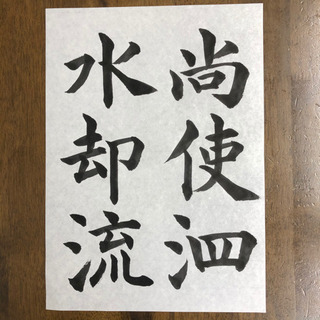 尚使泗
水却流